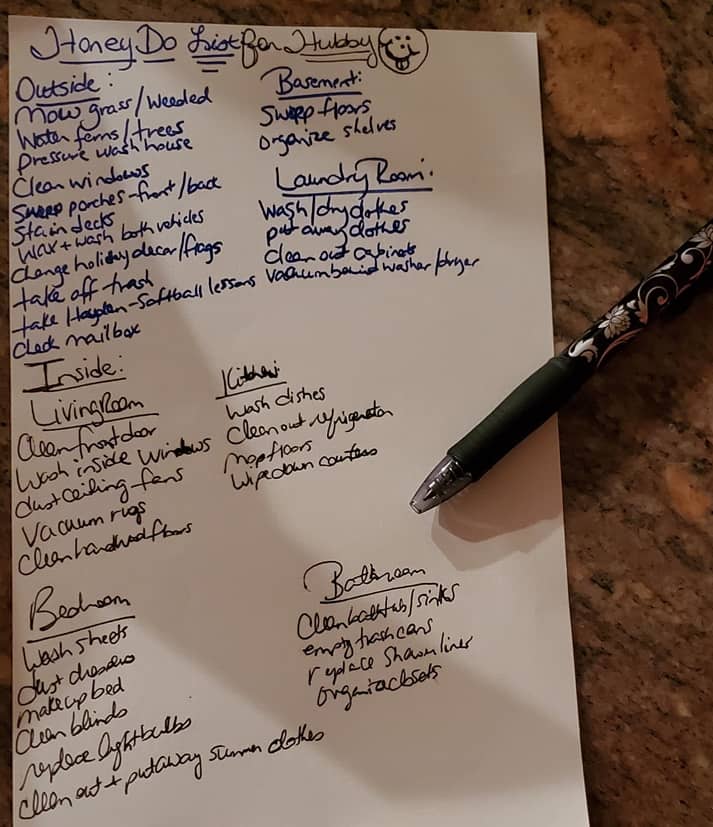 Honey Do List for Hubby
Outside:
Mow grass/weeded
Water ferns/trees
Pressure wash house
Clean windows
Sweep porches-front/back
Stain decks
Wax + wash both vehicles
Change holiday decor/flags
take off trash
take Hayden-Softball lessons
Check mailbox
Basement:
Sweep floors
organize shelves
Laundry Room:
Wash/dry clothes
put away clothes
clean out cabinets
Vacuum behind washer/dryer
Inside:
Living Room
Clean front door
Wash inside windows
dust ceiling fans
Vacuum rugs
Clean hardwood floors
Kitchen:
Wash dishes
Clean out refrigerator
Mop floors
Wipe down counters
Bedroom
Wash sheets
dust dressers
make up bed
Clean blinds
replace lightbulbs
Clean out + put away summer clothes
Bathroom
Clean bathtub/sinks
empty trash cans
replace shower liner
organize closets